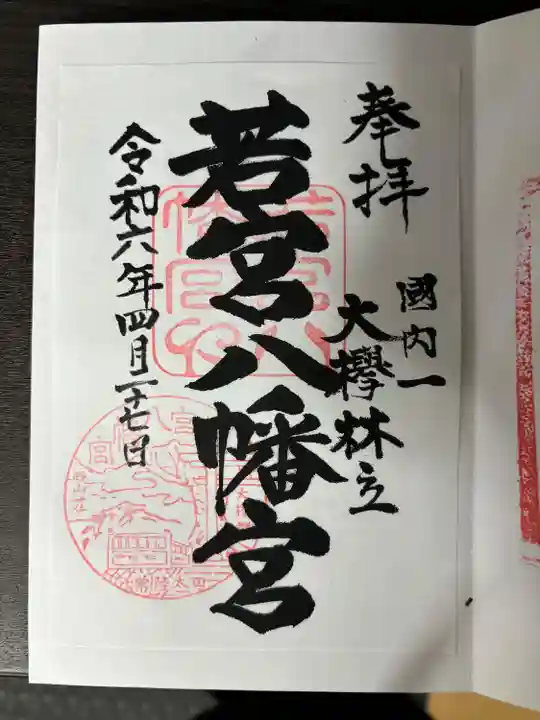 奉拝
國内一
大欅林立
若宮八幡宮
令和六年四月二十七日
常陸太田